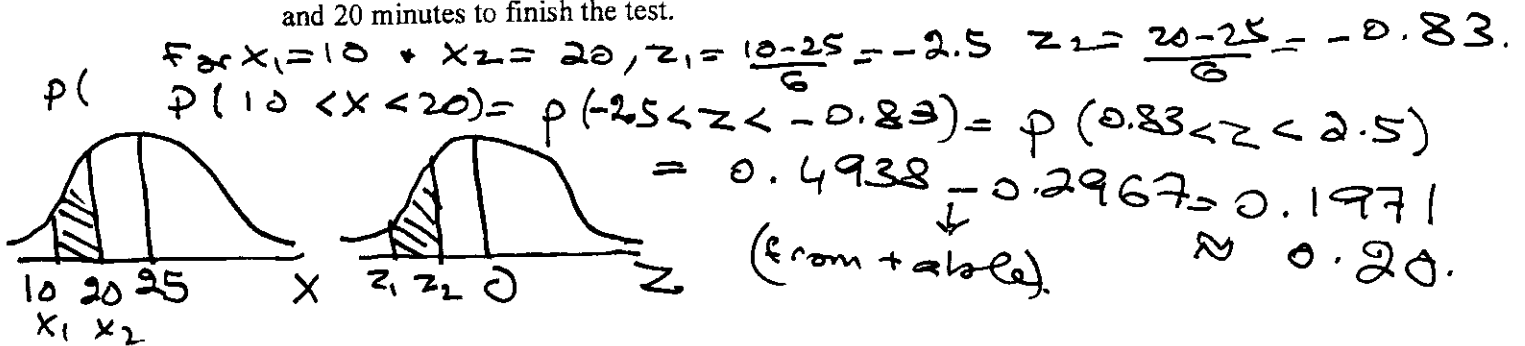 and 20 minutes to finish the test.
For x₁=10 + x₂= 20, z₁= (10-25)/6 = -2.5 z₂= (20-25)/6 = -0.83.
P( P(10 <x <20)= P(-2.5<z< -0.83)= P(0.83<z< 2.5)
= 0.4938 - 0.2967= 0.1971
↓
(from table). ≈ 0.20.
10 20 25 X z₁ z₂ 0 Z
x₁ x₂